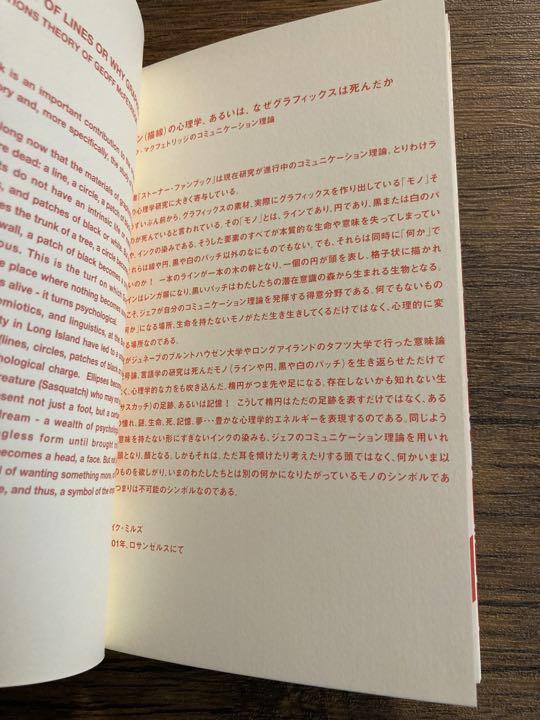 OF LINES OR WHY GRA
TIONS THEORY OF GEOFF MCFE
k is an important contribution to
ory and, more specifically, the stu
long now that the materials of gra
re dead: a line, a circle, a patch of
ts do not have an intrinsic life or
, and patches of black or white
es the trunk of a tree, a circle be
wall, a patch of black becomes a
ous. This is the turf on which
e place where nothing becomes
s alive - it turns psychological.
emiotics, and linguistics, at the
ty in Long Island have led to a
(lines, circles, patches of black
chological charge. Ellipses beco
reature (Sasquatch) who may
sent not just a foot, but a
dream - a wealth of psycholog
ngless form until brought
becomes a head, a face. But
l of wanting something more,
e, and thus, a symbol of the
ン(描線)の心理学、あるいは、なぜグラフィックスは死んだか
・マクフェトリッジのコミュニケーション理論
『ストーナー・ファンブック』は現在研究が進行中のコミュニケーション理論、とりわけラ
の心理学研究に大きく寄与している。
ずいぶん前から、グラフィックスの素材、実際にグラフィックスを作り出している「モノ」そ
のが死んでいると言われている。その「モノ」とは、ラインであり、円であり、黒または白のパ
や、インクの染みである。そうした要素のすべてが本質的な生命や意味を失ってしまってい
れらは線や円、黒や白のパッチ以外のなにものでもない。でも、それらは同時に「何か」で
いのか! 一本のラインが一本の木の幹となり、一個の円が頭を表し、格子状に描かれ
インはレンガ塀になり、黒いパッチはわたしたちの潜在意識の森から生まれる生物となる。
こそ、ジェフが自分のコミュニケーション理論を発揮する得意分野である。何でもないもの
何か」になる場所、生命を持たないモノがただ生き生きしてくるだけではなく、心理的に変
る場所なのである。
がジュネーブのブルントハウゼン大学やロングアイランドのタフツ大学で行った意味論
号論、言語学の研究は死んだモノ(ラインや円、黒や白のパッチ)を生き返らせただけで
く、心理学的な力も吹き込んだ。楕円がつま先や足になる。存在しないかも知れない生
サスカッチ)の足跡、あるいは記憶! こうして楕円はただの足跡を表すだけではなく、ある
憧れ、謎、生命、死、記憶、夢…豊かな心理学的エネルギーを表現するのである。同じよう
意味を持たない形にすぎないインクの染みも、ジェフのコミュニケーション理論を用いれ
頭となり、顔となる。しかもそれは、ただ耳を傾けたり考えたりする頭ではなく、何かいま以
のものを欲しがり、いまのわたしたちとは別の何かになりたがっているモノのシンボルであ
つまりは不可能のシンボルなのである。
イク・ミルズ
01年、ロサンゼルスにて